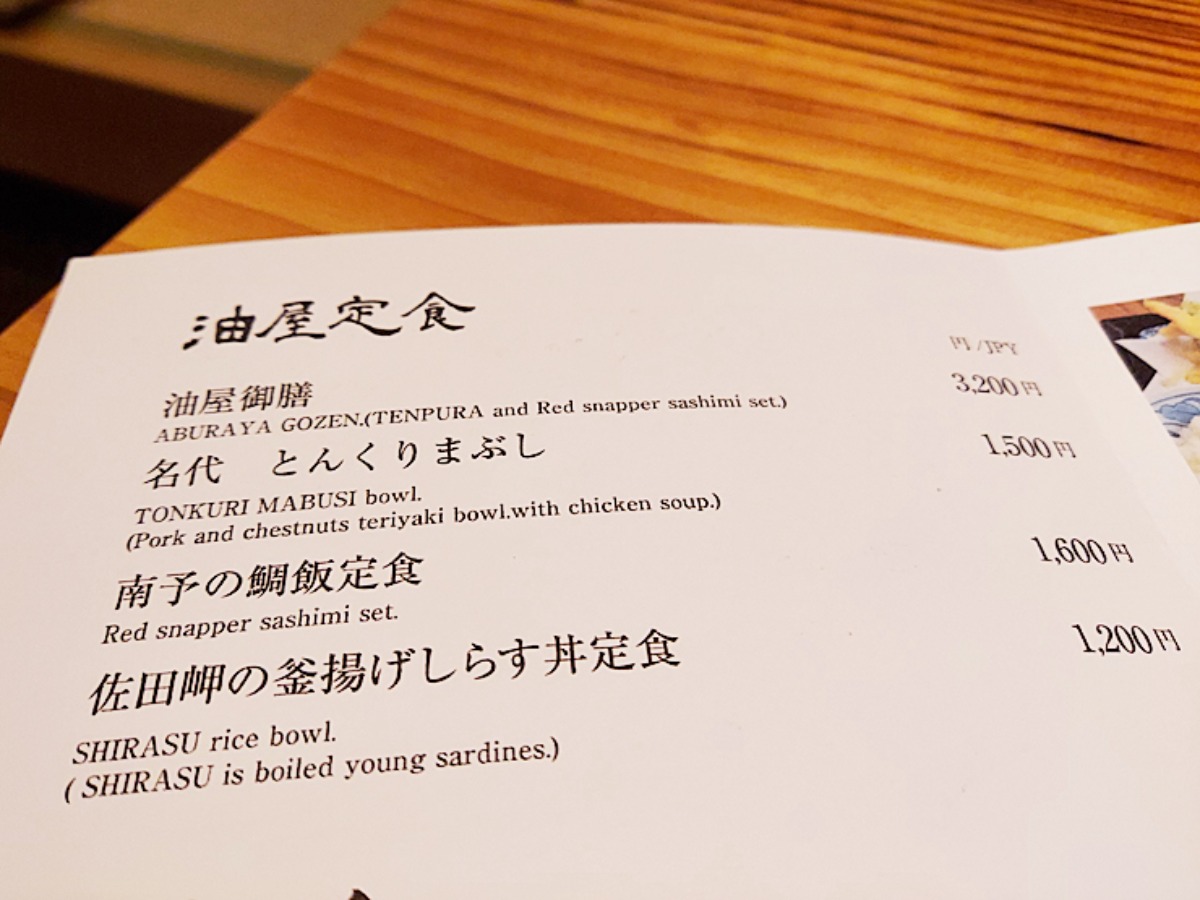 油屋定食
円/JPY
油屋御膳 3,200円
ABURAYA GOZEN.(TENPURA and Red snapper sashimi set.)
名代 とんくりまぶし 1,500円
TONKURI MABUSI bowl.
(Pork and chestnuts teriyaki bowl.with chicken soup.)
南予の鯛飯定食 1,600円
Red snapper sashimi set.
佐田岬の釜揚げしらす丼定食 1,200円
SHIRASU rice bowl.
( SHIRASU is boiled young sardines.)